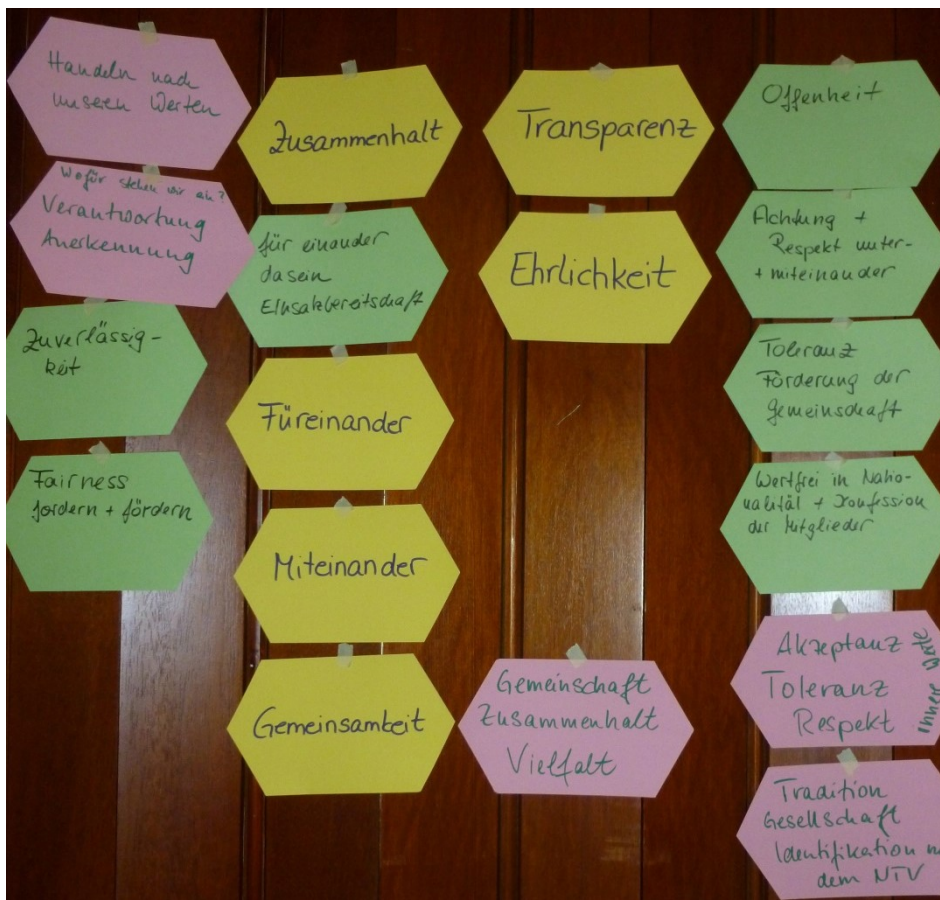 Handeln nach
unseren Werten
Wofür stehen wir ein?
Verantwortung
Anerkennung
Zuverlässig-
keit
Fairness
fordern + fördern
Zusammenhalt
für einander
dasein
Einsatzbereitschaft
Füreinander
Miteinander
Gemeinsamkeit
Transparenz
Ehrlichkeit
Gemeinschaft
Zusammenhalt
Vielfalt
Offenheit
Achtung +
Respekt unter-
+ miteinander
Toleranz
Förderung der
Gemeinschaft
Wertfrei in Natio-
nalität + Konfession
der Mitglieder
Akzeptanz
Toleranz
Respekt
Innere
Tradition
Gesellschaft
Identifikation
dem NTV